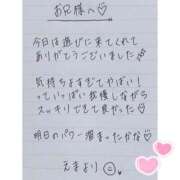 お兄様へ♡
今日は遊びに来てくれて
ありがとうございました
気持ちよすぎてやばい!
っていっぱい我慢しながら
スッキリできて良かった♡
明日のパワー溜まったかな♡
えまより